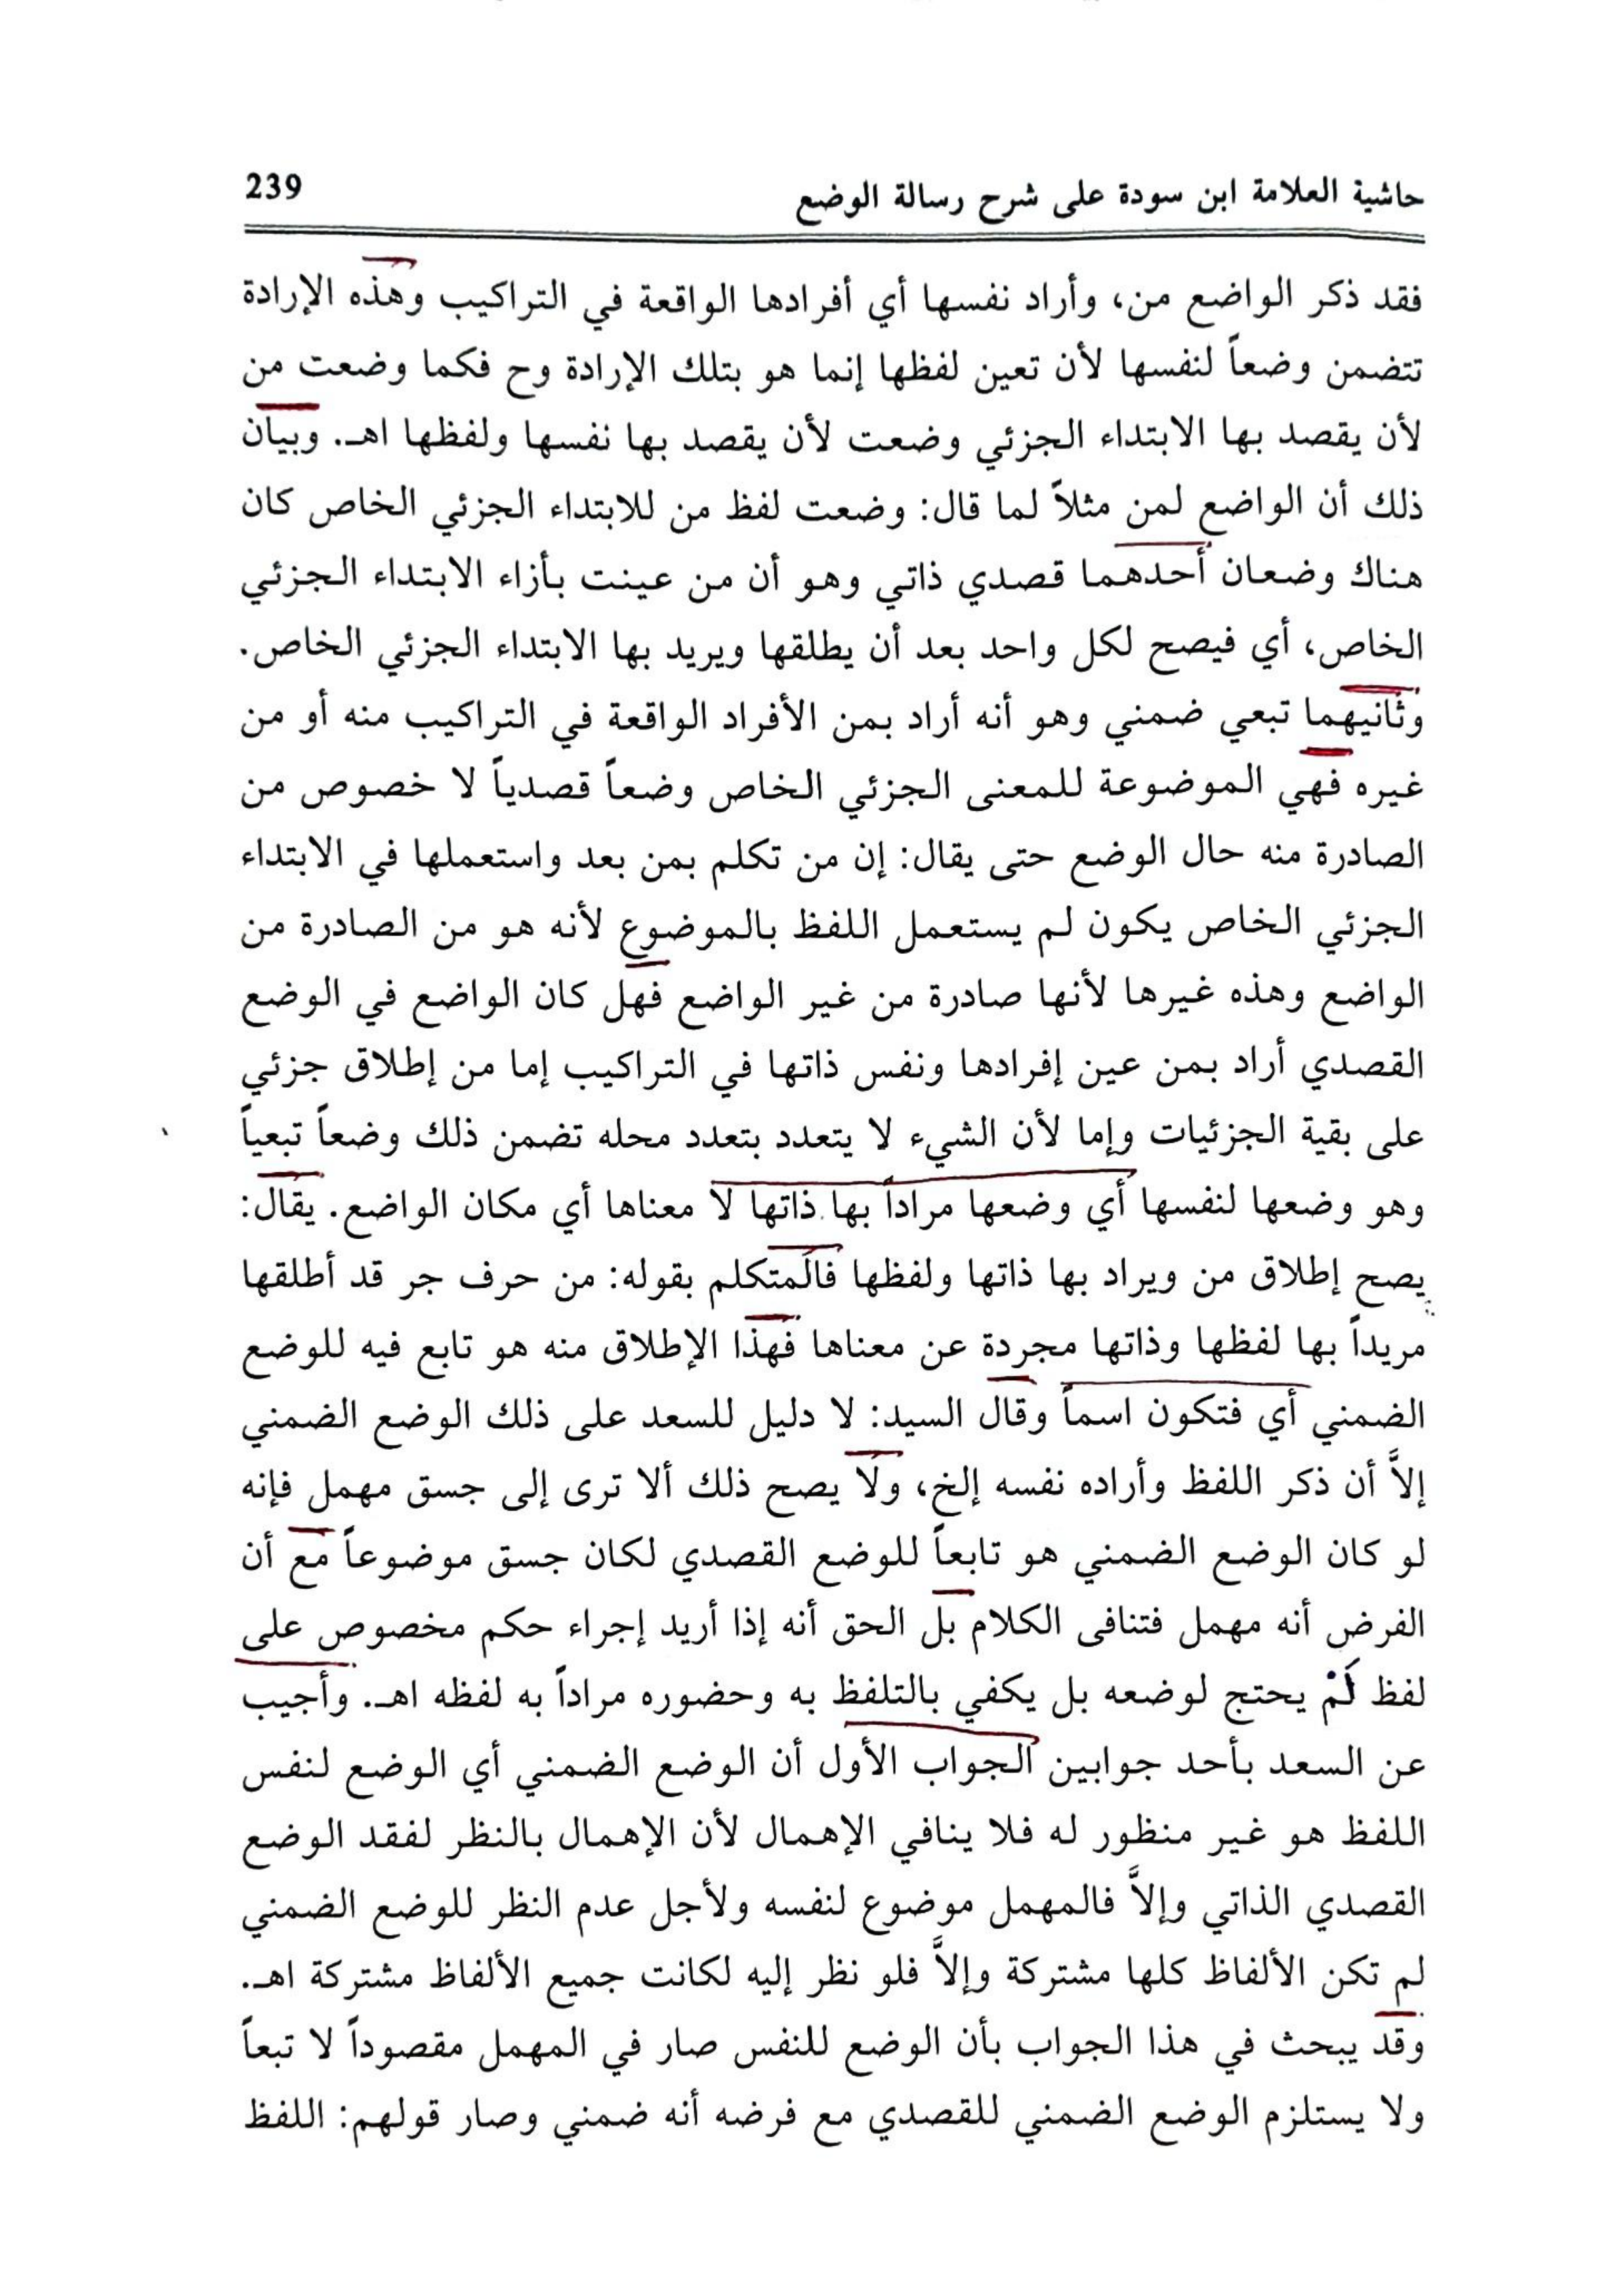 حاشية العلامة ابن سودة على شرح رسالة الوضع 239
فقد ذكر الواضع من، وأراد نفسها أي أفرادها الواقعة في التراكيب وهذه الإرادة
تتضمن وضعاً لنفسها لأن تعين لفظها إنما هو بتلك الإرادة وح فكما وضعت من
لأن يقصد بها الابتداء الجزئي وضعت لأن يقصد بها نفسها ولفظها اهـ. وبيان
ذلك أن الواضع لمن مثلاً لما قال: وضعت لفظ من للابتداء الجزئي الخاص كان
هناك وضعان أحدهما قصدي ذاتي وهو أن من عينت بأزاء الابتداء الجزئي
الخاص، أي فيصح لكل واحد بعد أن يطلقها ويريد بها الابتداء الجزئي الخاص.
وثانيهما تبعي ضمني وهو أنه أراد بمن الأفراد الواقعة في التراكيب منه أو من
غيره فهي الموضوعة للمعنى الجزئي الخاص وضعاً قصدياً لا خصوص من
الصادرة منه حال الوضع حتى يقال: إن من تكلم بمن بعد واستعملها في الابتداء
الجزئي الخاص يكون لم يستعمل اللفظ بالموضوع لأنه هو من الصادرة من
الواضع وهذه غيرها لأنها صادرة من غير الواضع فهل كان الواضع في الوضع
القصدي أراد بمن عين إفرادها ونفس ذاتها في التراكيب إما من إطلاق جزئي
على بقية الجزئيات وإما لأن الشيء لا يتعدد بتعدد محله تضمن ذلك وضعاً تبعياً
وهو وضعها لنفسها أي وضعها مراداً بها ذاتها لا معناها أي مكان الواضع. يقال:
يصح إطلاق من ويراد بها ذاتها ولفظها فالمتكلم بقوله: من حرف جر قد أطلقها
مريداً بها لفظها وذاتها مجردة عن معناها فهذا الإطلاق منه هو تابع فيه للوضع
الضمني أي فتكون اسماً وقال السيد: لا دليل للسعد على ذلك الوضع الضمني
إلاَّ أن ذكر اللفظ وأراده نفسه إلخ، ولا يصح ذلك ألا ترى إلى جسق مهمل فإنه
لو كان الوضع الضمني هو تابعاً للوضع القصدي لكان جسق موضوعاً مع أن
الفرض أنه مهمل فتنافى الكلام بل الحق أنه إذا أريد إجراء حكم مخصوص على
لفظ لَمْ يحتج لوضعه بل يكفي بالتلفظ به وحضوره مراداً به لفظه اهـ. وأجيب
عن السعد بأحد جوابين الجواب الأول أن الوضع الضمني أي الوضع لنفس
اللفظ هو غير منظور له فلا ينافي الإهمال لأن الإهمال بالنظر لفقد الوضع
القصدي الذاتي وإلاَّ فالمهمل موضوع لنفسه ولأجل عدم النظر للوضع الضمني
لم تكن الألفاظ كلها مشتركة وإلاَّ فلو نظر إليه لكانت جميع الألفاظ مشتركة اهـ.
وقد يبحث في هذا الجواب بأن الوضع للنفس صار في المهمل مقصوداً لا تبعاً
ولا يستلزم الوضع الضمني للقصدي مع فرضه أنه ضمني وصار قولهم: اللفظ